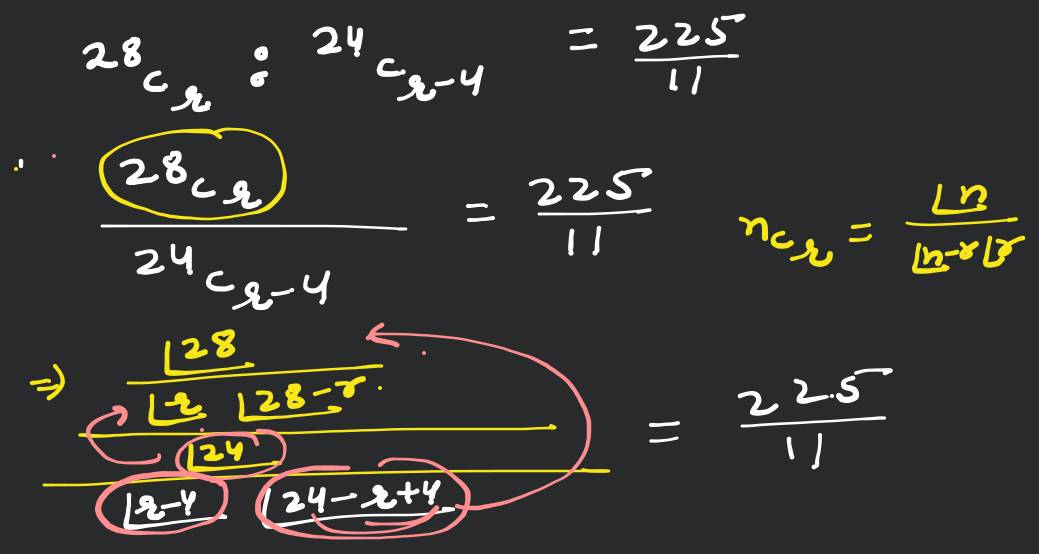 28Cr : 24Cr-4 = 225/11
28Cr / 24Cr-4 = 225/11
nCr = ⌊n / ⌊n-r ⌊r
⇒ ⌊28 / ⌊r ⌊28-r / ⌊24 / ⌊r-4 ⌊24-r+4 = 225/11